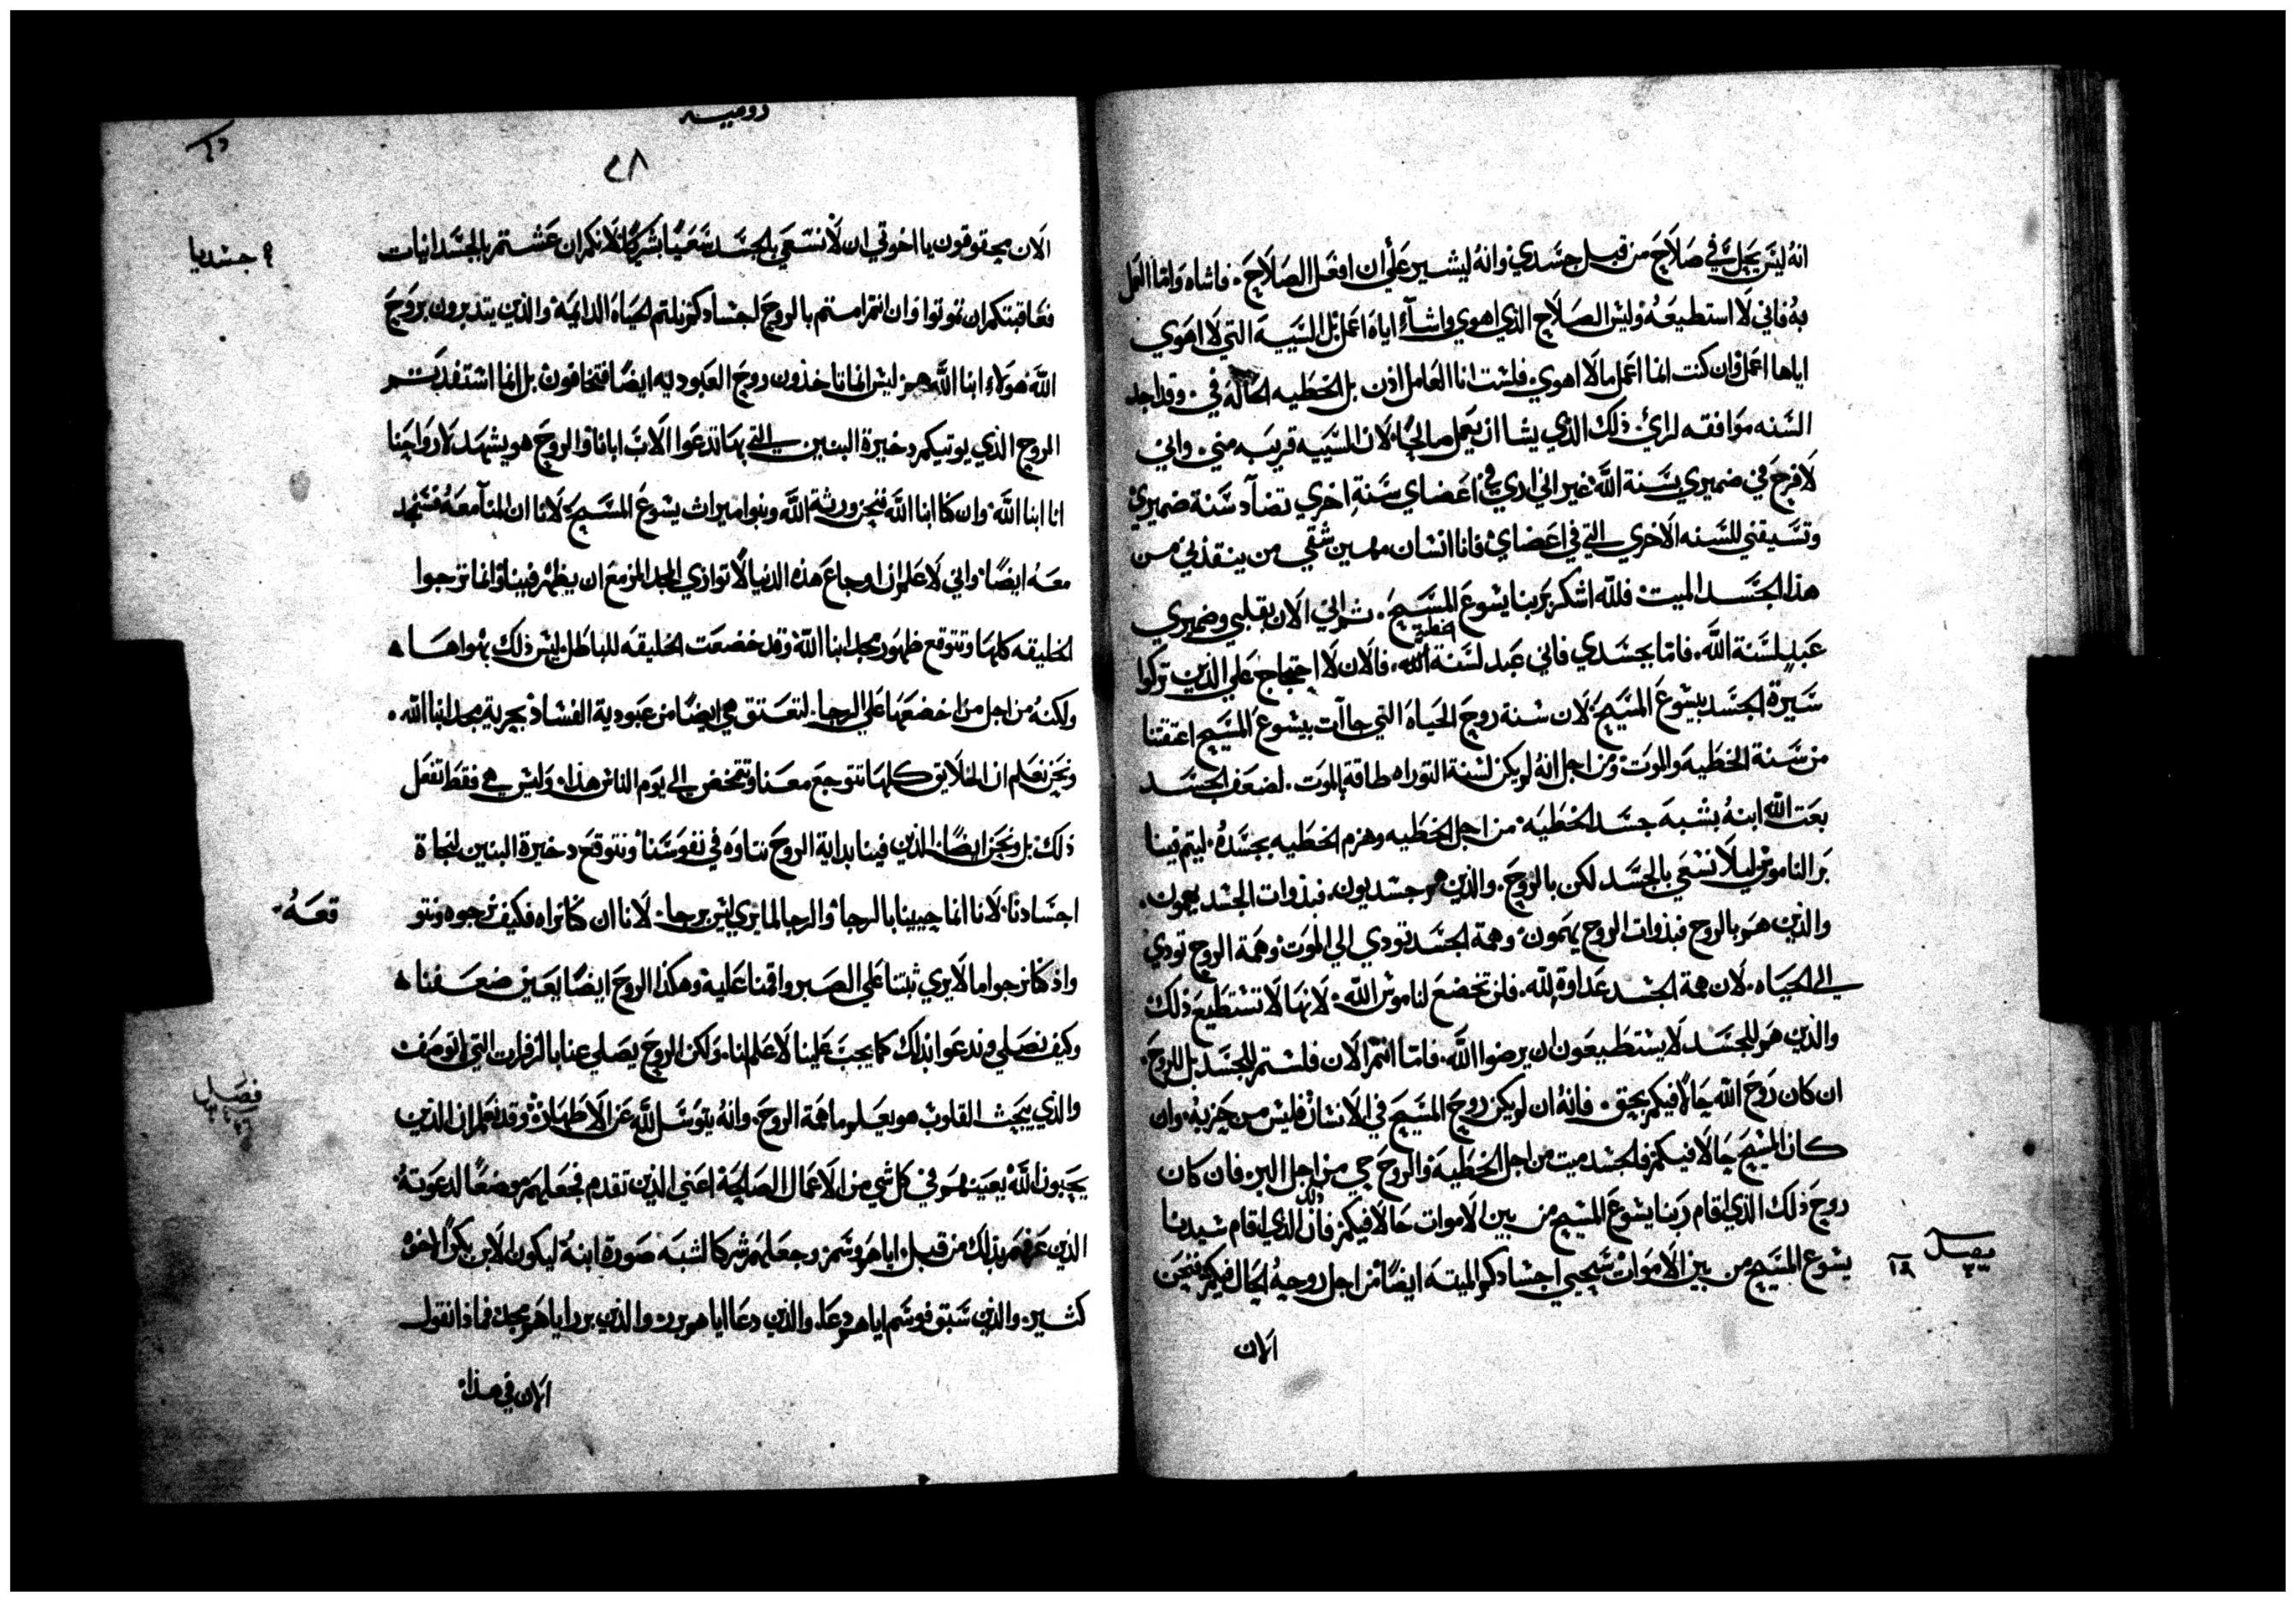 انه ليس يحل في صلاح من قبل جسدي وانه ليسير علي ان افعل الصلاح. فاشاه واما العمل
به فاني لا استطيعه وليس الصلاح الذي اهوي واشآء اياه اعمل بل السيية التي لا اهوي
اياها اعمل وان كنت انما اعمل ما لا اهوي فلست انا العامل اذن بل الخطيه الحالة في. وقد اجد
السنه موافقه لراي ذلك الذي يشا ان يعمل صالحًا لان السييه قريبه مني. واني
لافرح في ضميري بسنة الله غير اني اري في اعضاي سنة اخري تضآد سنة ضميري
وتسيقني للسنه الاخري التي في اعضاي فانا انسان مهين شقي من ينقذني من
هذا الجسد الميت فلله اشكر بربنا يشوع المسيح. ثم اني الان بقلبي وضميري
عبد لسنة الله. فاما بجسدي فاني عبد لسنة الخطية. فالان لا احتجاج علي الذين تركوا
سيرة الجسد بيشوع المسيح لان سنة روح الحياه التي جاآت بيشوع المسيح اعتقتنا
من سنة الخطيه والموت ومن اجل انه لم يكن لسنة التوراه طاقة بالموت. لضعف الجسد
بعث الله ابنه بشبه جسد الخطيه من اجل الخطيه وهزم الخطيه بجسده. ليتم فينا
بر الناموس ليلا نسعي بالجسد لكن بالروح. والذين هم جسديون. فبذوات الجسد يهمون.
والذين هم بالروح فبذوات الروح يهمون وهمة الجسد تودي الي الموت وهمة الروح تودي
الي الحياه. لان همة الجسد عداوة لله. فلن تخضع لناموس الله. لانها لا تستطيع ذلك
والذين هم للجسد لا يستطيعون ان يرضوا الله. فاما انتم الان فلستم للجسد بل للروح.
ان كان روح الله حالًا فيكم بحق. فانه ان لم يكن روح المسيح في الانسان فليس من حزبه. وان
كان المسيح حالا فيكم فالجسد ميت من اجل الخطيه والروح حي من اجل البر. فان كان
روح ذلك الذي اقام ربنا يشوع المسيح من بين الاموات حالا فيكم فان ذلك الذي اقام سيدنا
يشوع المسيح من بين الاموات سيحيي اجسادكم الميته ايضًا من اجل روحه الحال فيكم فنحن
١٩
الان
روميه
٢٨
الان محقوقون يا اخوتي ان لا نسعي بالجسد سعيًا بشريًا لانكم ان عشتم بالجسدانيات
جسديا
فعاقبتكم ان تموتوا وان انتم امتم بالروح اجسادكم نلتم الحياه الدايمة والذين يتدبرون بروح
الله هولاء ابنا الله هم ليس انما تاخذون روح العبوديه ايضًا فتخافون بل انما استفدتم
الروح الذي يوتيكم دخيرة البنين التي بها تدعوا الاب ابانا والروح هو يشهد لارواحنا
انا ابنا الله. وان كنا ابنا الله فنحن ورثة الله وبنوا ميراث يشوع المسيح. لانا ان المنآ معه فسنمجد
معه ايضًا. واني لاعلم ان اوجاع هذه الدنيا لا توازي المجد المزمع ان يظهر فينا وانما ترجوا
الخليقه كلها وتتوقع ظهور مجد ابنا الله وقد خضعت الخليقه للباطل. ليس ذلك بهواها
ولكنه من اجل من اخضعها علي الرجا. لتعتق هي ايضًا من عبودية الفساد بحرية مجد ابنا الله.
ونحن نعلم ان الخلايق كلها تتوجع معنا وتتمخض الي يوم الناس هذا. وليس هي فقط تفعل
ذلك بل ونحن ايضًا. الذين فينا بداية الروح نتاوه في نفوسنا ونتوقع دخيرة البنين لنجاة
اجسادنا. لانا انما حيينا بالرجا. والرجا لما يري ليس برجا. لانا ان كنا نراه فكيف نرجوه ونتو
قعه
واذ كنا نرجوا ما لا يري ثبتنا علي الصبر واقمنا عليه وهكذا الروح ايضًا يعين ضعفنا
وكيف نصلي وندعوا بذلك كما يجب علينا لا علم لنا. ولكن الروح يصلي عنا بالزفرات التي لا توصف
فصل
والذي يبحث القلوب هو يعلم ما همة الروح. وانه يتوسل لله عن الاطهار وقد نعلم ان الذين
يحبون الله يعينهم في كل شي من الاعمال الصالحة اعني الذين تقدم فجعلهم موضعًا لدعوته
الذين عرفهم بذلك من قبل اياهم وسم وجعلهم شركا لشبه صورة ابنه ليكون الابن بكر الاخوة
كثير. والذين سبق فوسم اياهم دعا. والذين دعا اياهم برر والذين برر اياهم مجد فماذا نقول
الان في هذا